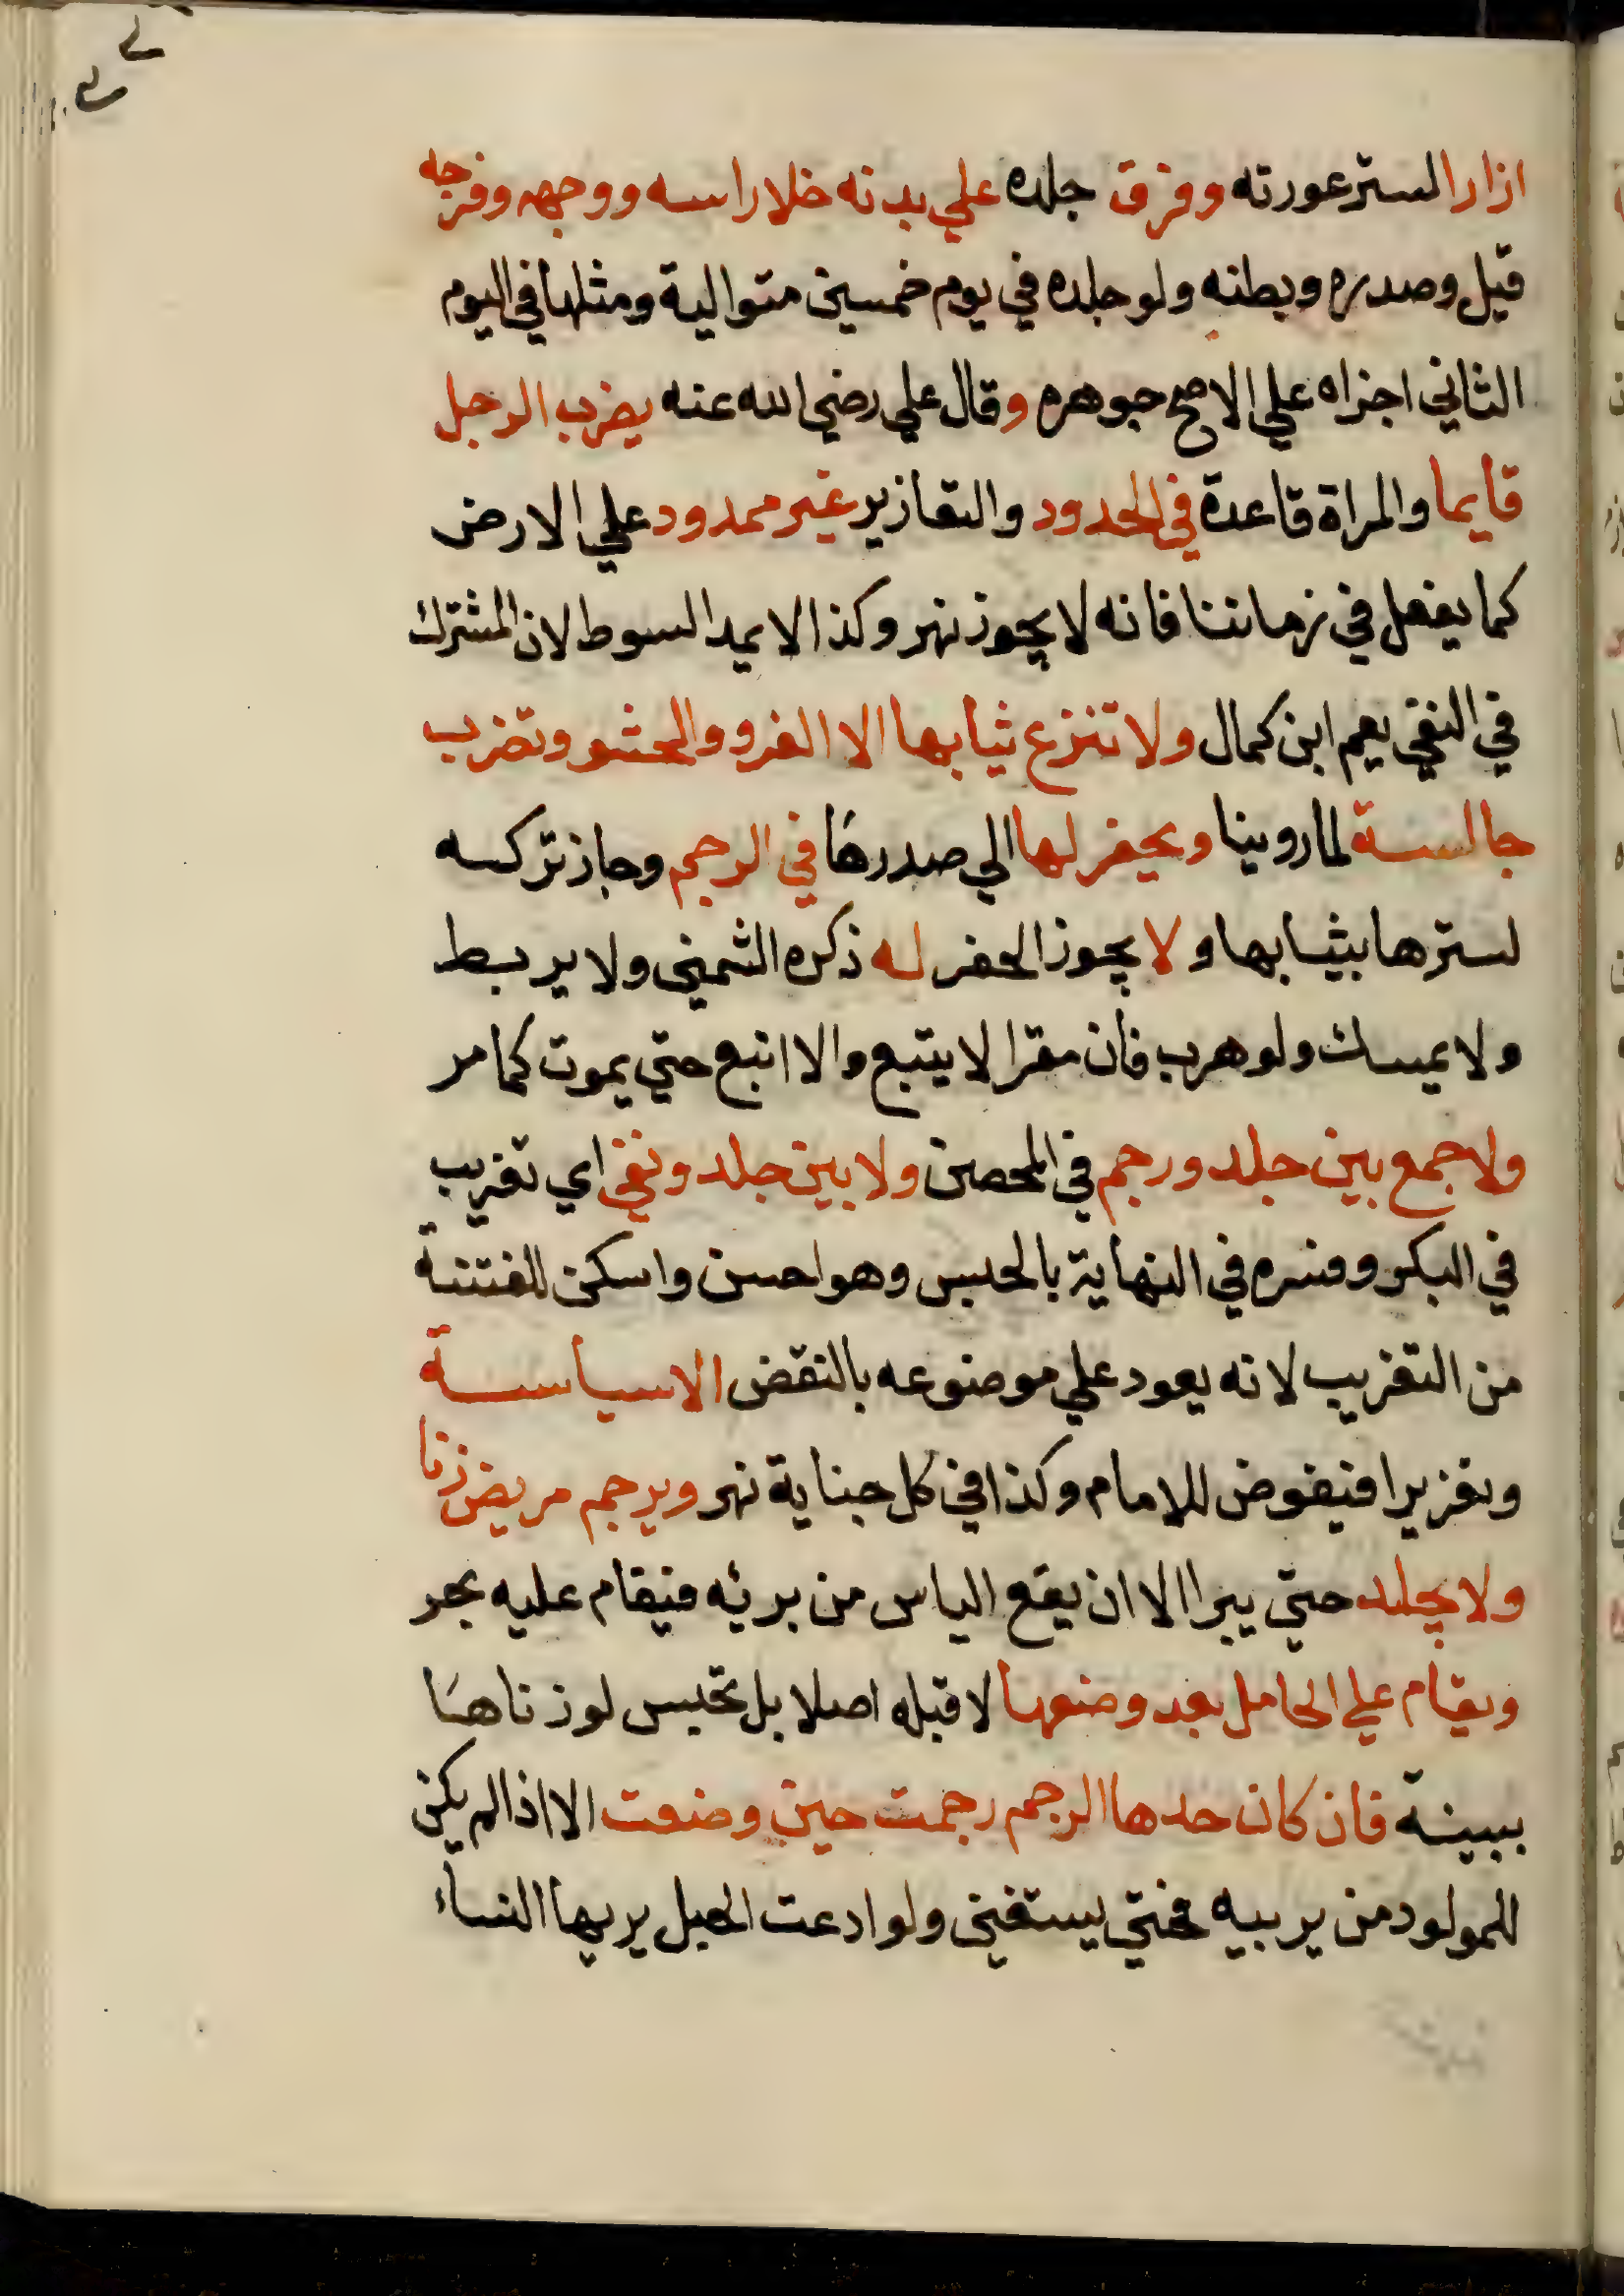 ازارا لستر عورته وفرق جلده علي بدنه خلا راسه ووجهه وفرجه
قيل وصدره وبطنه ولو جلده في يوم خمسين متوالية ومثلها في اليوم
الثاني اجزاه علي الاصح جوهره وقال علي رضي الله عنه يضرب الرجل
قايما والمراة قاعدة في الحدود والتعازير غير ممدود علي الارض
كما يفعل في زماننا فانه لا يجوز نهر وكذا لا يمد السوط لان المشترك
في النفي يعم ابن كمال ولا تنزع ثيابها الا الفرو والحشو وتضرب
جالسة لما روينا ويحفر لها الي صدرها في الرجم وجاز تركه
لسترها بثيابها ولا يجوز الحفر له ذكره الشمني ولا يربط
ولا يمسك ولو هرب فان مقرا لا يتبع والا اتبع حتي يموت كما مر
ولا جمع بين جلد ورجم في المحصن ولا بين جلد ونفي اي تغريب
في البكر وفسره في النهاية بالحبس وهو احسن واسكن للفتنة
من التغريب لانه يعود علي موضوعه بالنقض الا سياسة
وتعزيرا فيفوض للامام وكذا في كل جناية نهر ويرجم مريض زنا
ولا يجلد حتي يبرا الا ان يقع الياس من بريه فيقام عليه بحر
ويقام علي الحامل بعد وضعها لا قبله اصلا بل تحبس لو زناها
ببينة فان كان حدها الرجم رجمت حين وضعت الا اذا لم يكن
للمولود من يربيه فحتي يستغني ولو ادعت الحبل يريها النساء